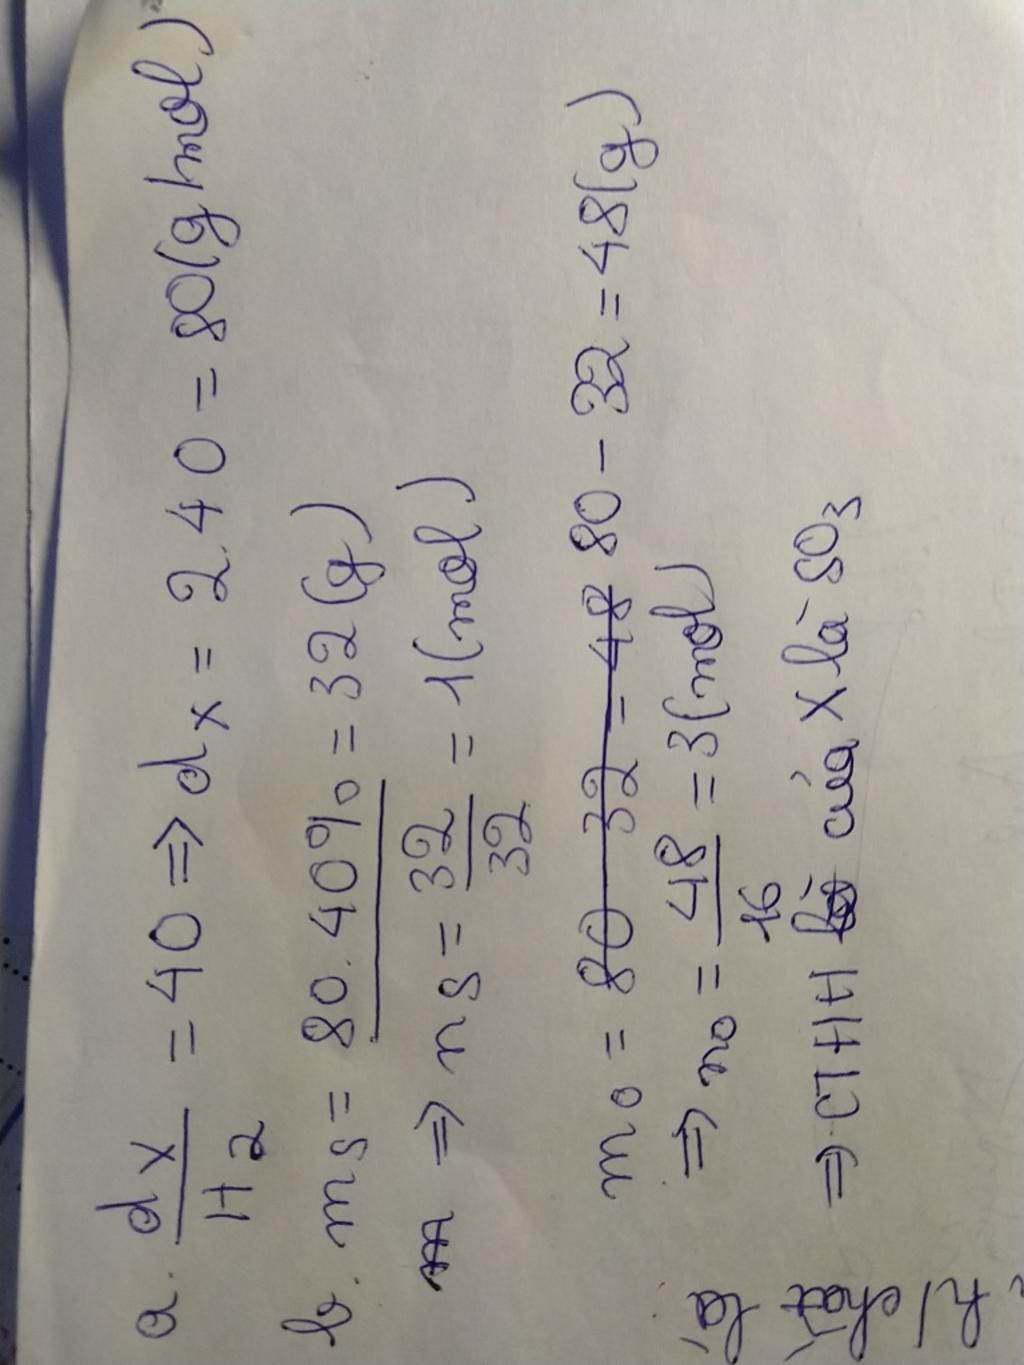 a. dX/H2 = 40 => dX = 2.40 = 80(g/mol)
b. mS = 80.40% = 32(g)
=> nS = 32/32 = 1(mol)
mO = 80 - 32 = 48(g)
=> nO = 48/16 = 3(mol)
=> CTHH của X là SO3